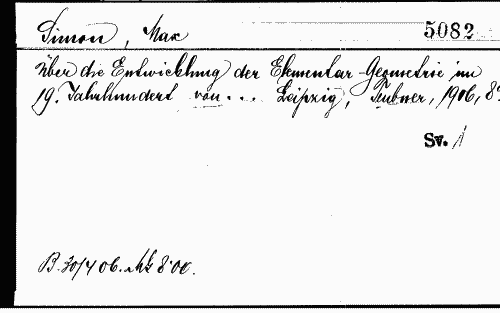 Simon, Max 5082
Über die Entwicklung der Elementar-Geometrie im
19. Jahrhundert von... Leipzig, Teubner, 1906, 8°.
Sv. 1
B. 30/4 06. Mk 8.00.